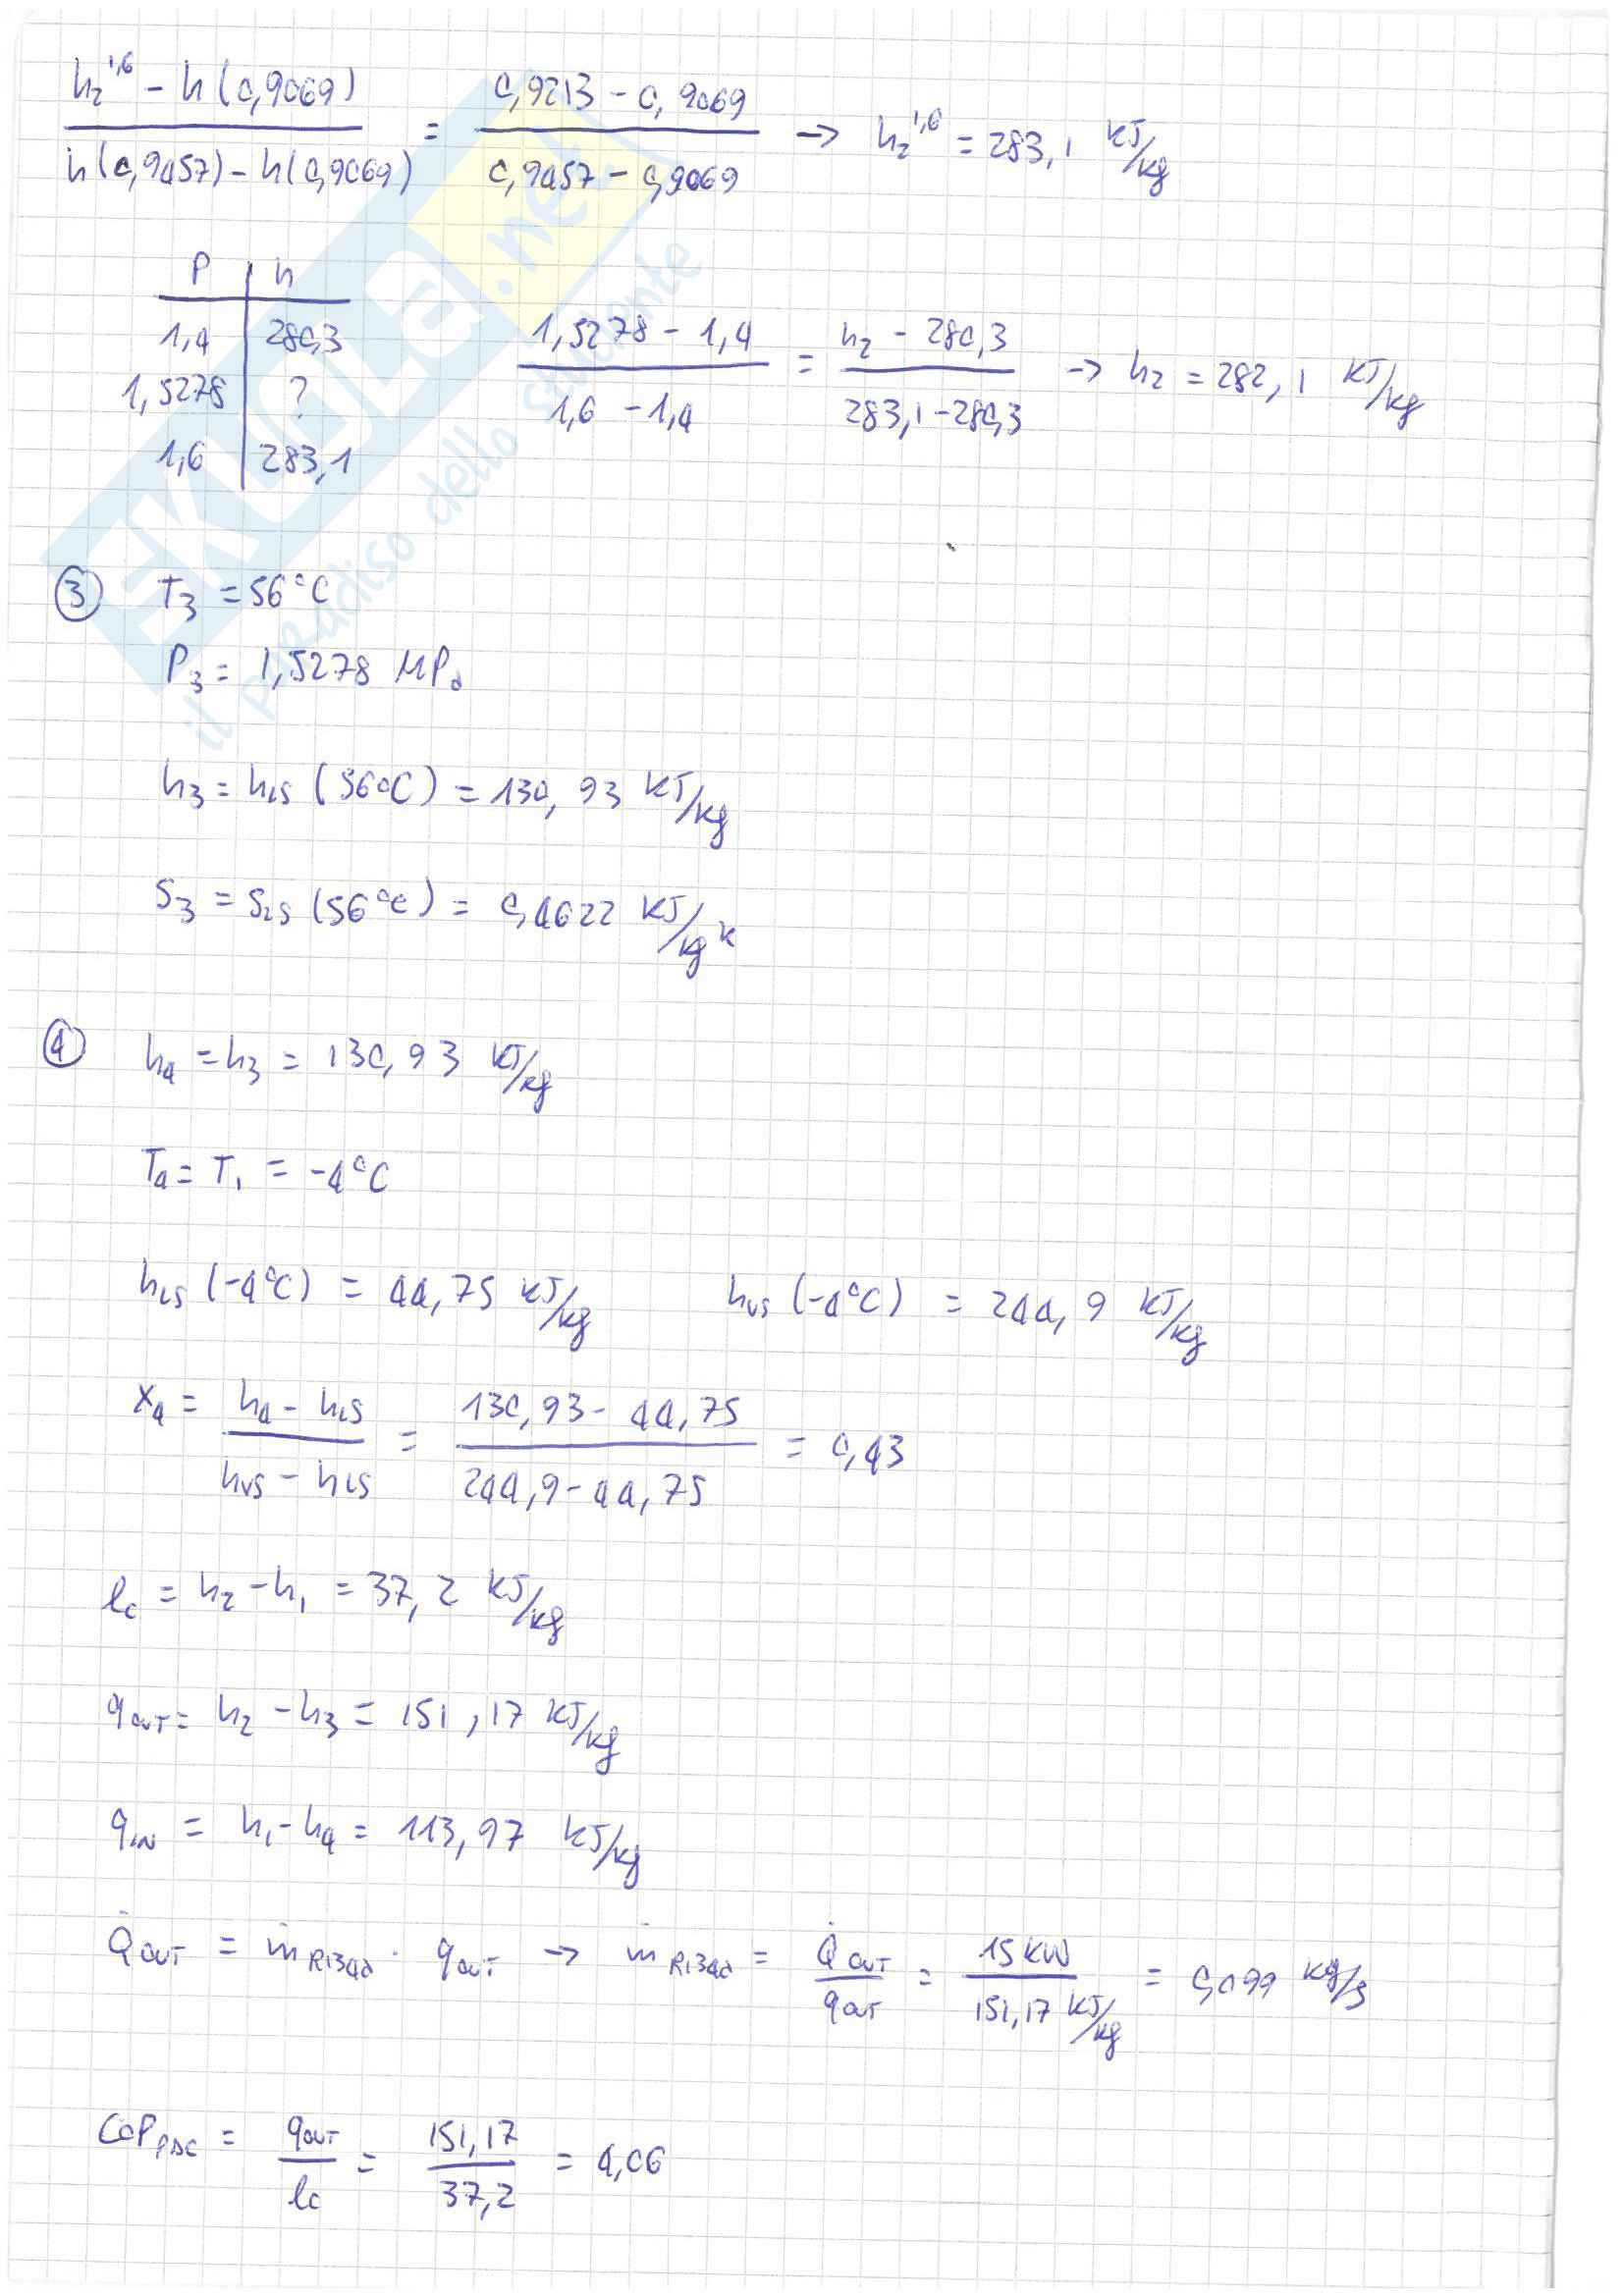 h₂^1,6 - h(0,9069) / h(0,9457) - h(0,9069) = 0,9213 - 0,9069 / 0,9457 - 0,9069 → h₂^1,6 = 283,1 kJ/kg
P | h
1,4 | 280,3
1,5278 | ?
1,6 | 283,1
1,5278 - 1,4 / 1,6 - 1,4 = h₂ - 280,3 / 283,1 - 280,3 → h₂ = 282,1 kJ/kg
SKUOLA.net
il paradiso dello studente
③ T₃ = 56°C
P₃ = 1,5278 MPa
h₃ = hLS (56°C) = 130,93 kJ/kg
S₃ = SLS (56°C) = 0,4622 kJ/kg K
④ h₄ = h₃ = 130,93 kJ/kg
T₄ = T₁ = -4°C
hLS (-4°C) = 44,75 kJ/kg hVS (-4°C) = 244,9 kJ/kg
X₄ = h₄ - hLS / hVS - hLS = 130,93 - 44,75 / 244,9 - 44,75 = 0,43
lc = h₂ - h₁ = 37,2 kJ/kg
qOUT = h₂ - h₃ = 151,17 kJ/kg
qIN = h₁ - h₄ = 113,97 kJ/kg
Q̇OUT = ṁR134a · qOUT → ṁR134a = Q̇OUT / qOUT = 15 kW / 151,17 kJ/kg = 0,099 kg/s
COP PDC = qOUT / lc = 151,17 / 37,2 = 4,06